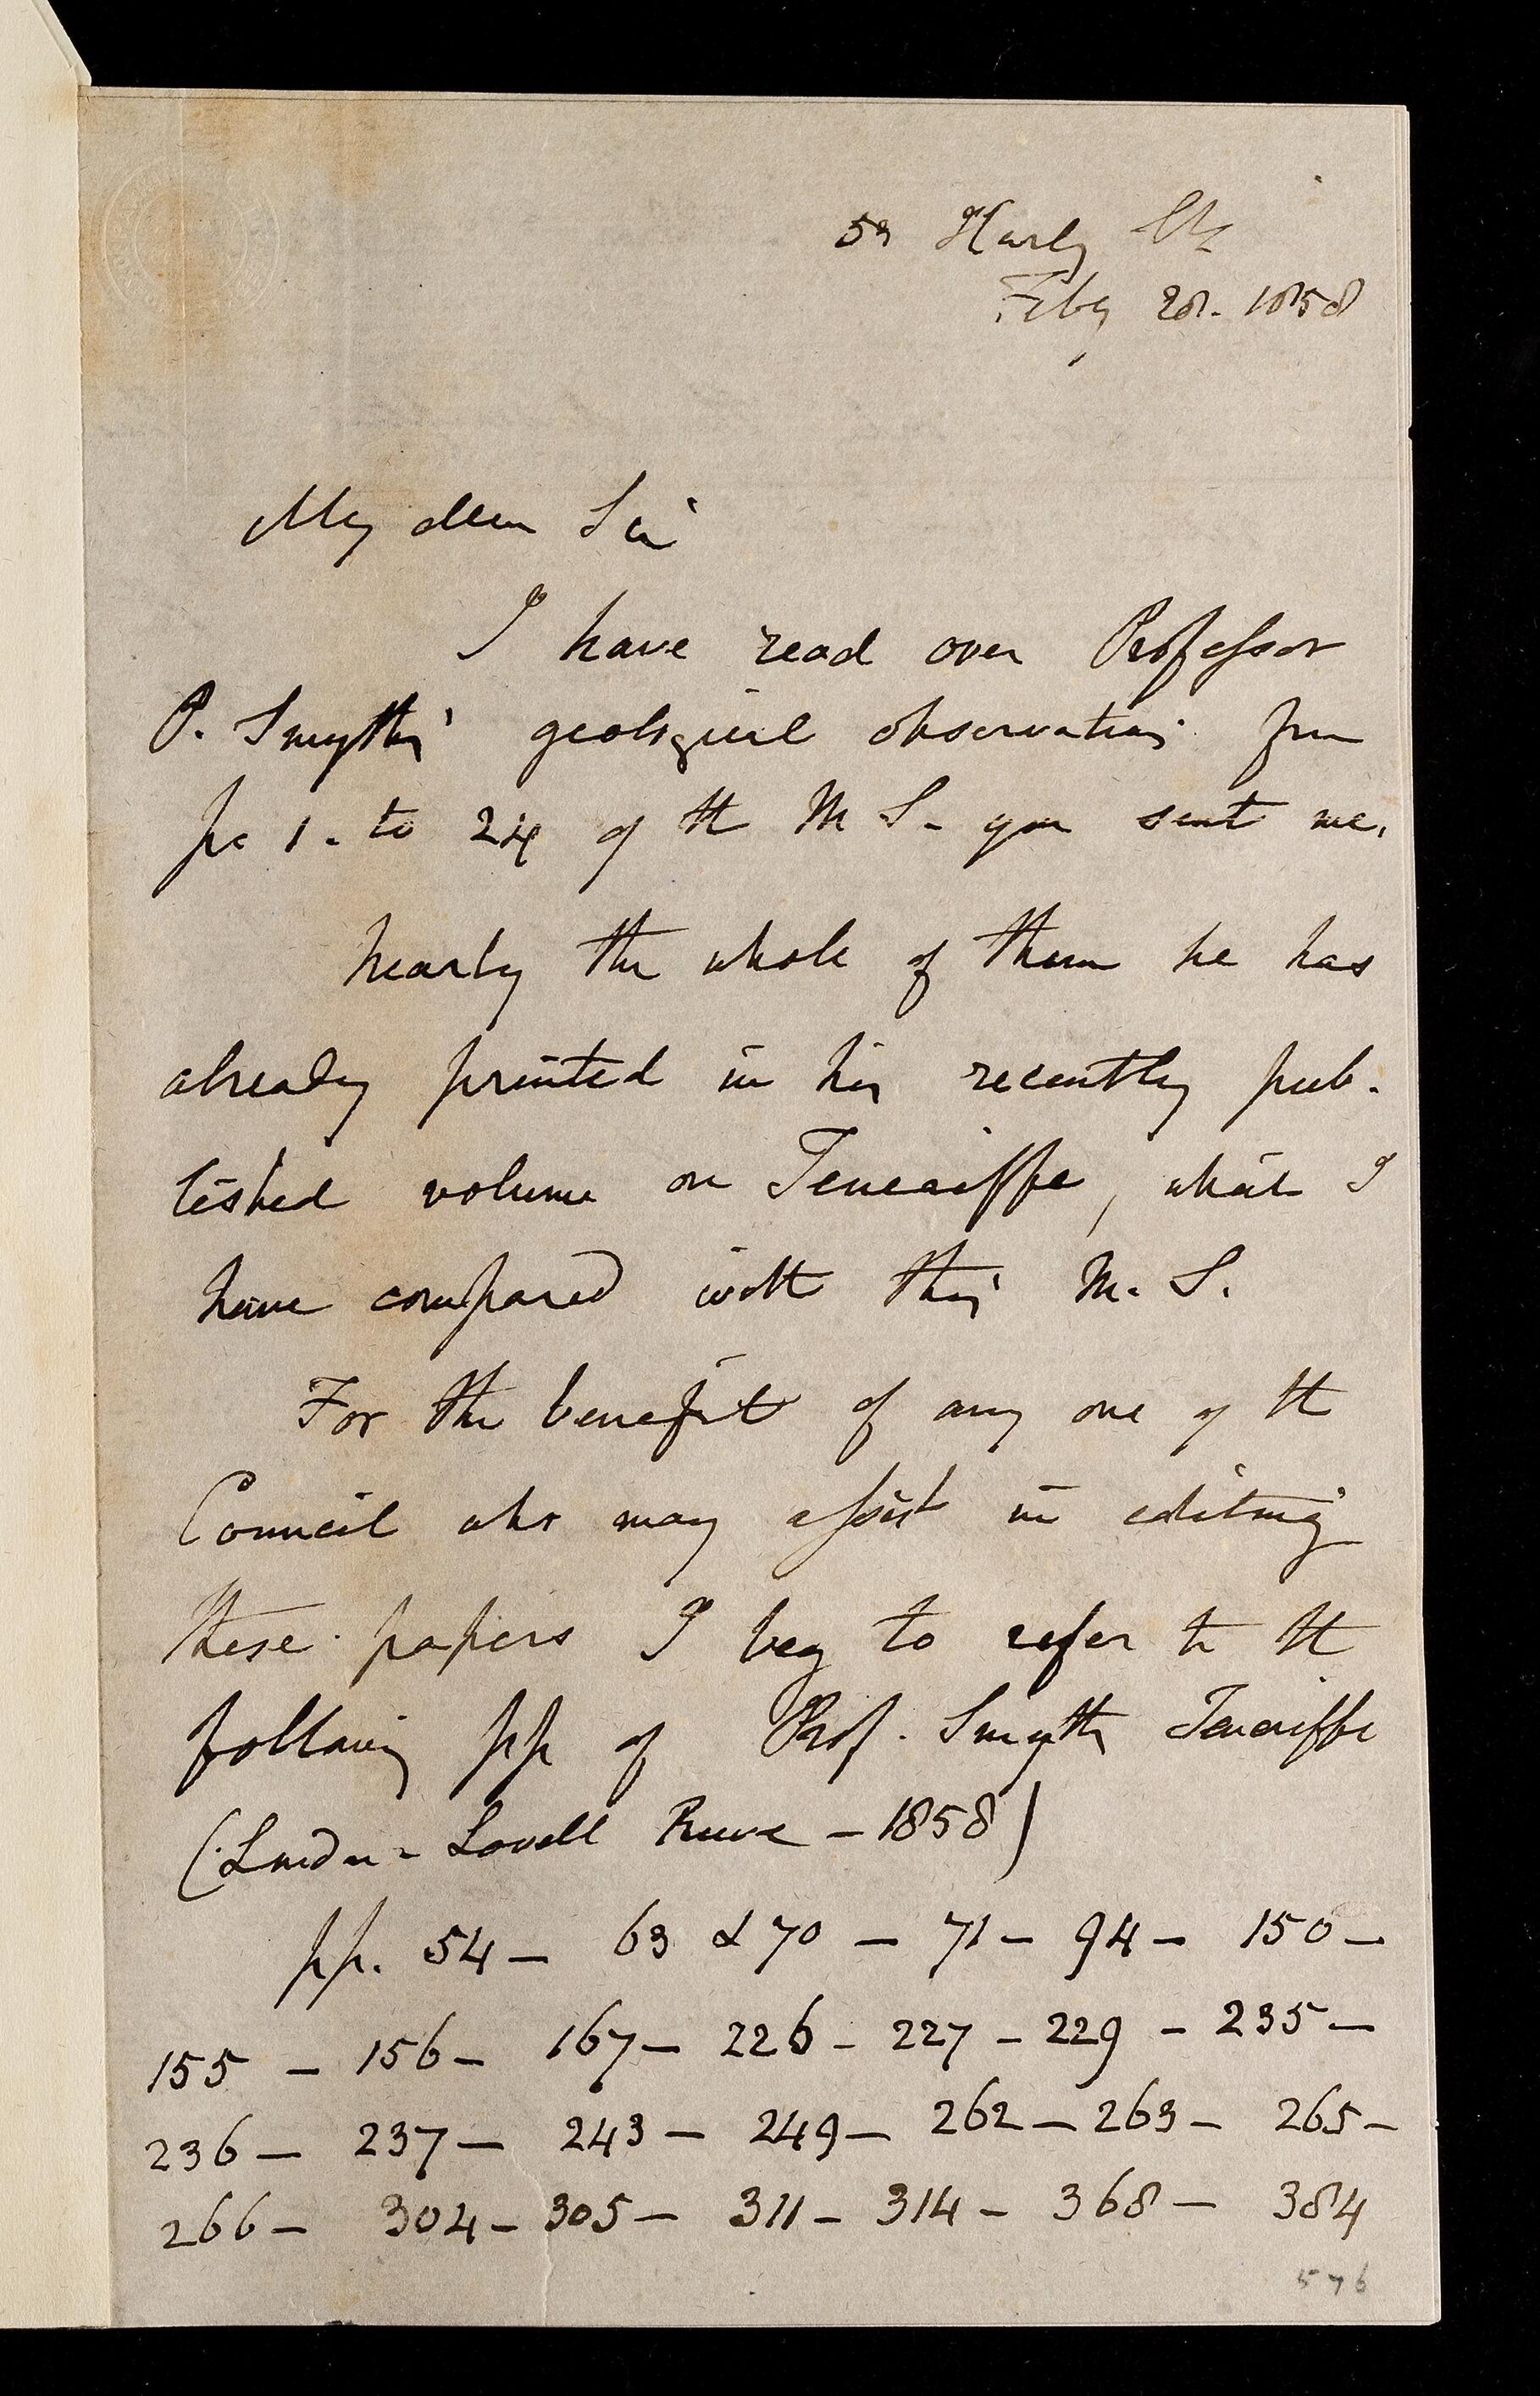 53 Harley St.
Feby 28. 1858
My dear Sir
I have read over Professor
P. Smyth's geological observations from
pe 1. to 24 of the M S. you sent me.
Nearly the whole of them he has
already printed in his recently pub-
lished volume on Teneriffe, which I
have compared with this M. S.
For the benefit of any one of the
Council who may assist in editing
these papers I beg to refer to the
following pp of Prof. Smyth's Teneriffe
(London - Lovell Reeve - 1858)
pp. 54 - 63 & 70 - 71 - 94 - 150 -
155 - 156 - 167 - 226 - 227 - 229 - 235 -
236 - 237 - 243 - 249 - 262 - 263 - 265 -
266 - 304 - 305 - 311 - 314 - 368 - 384
576